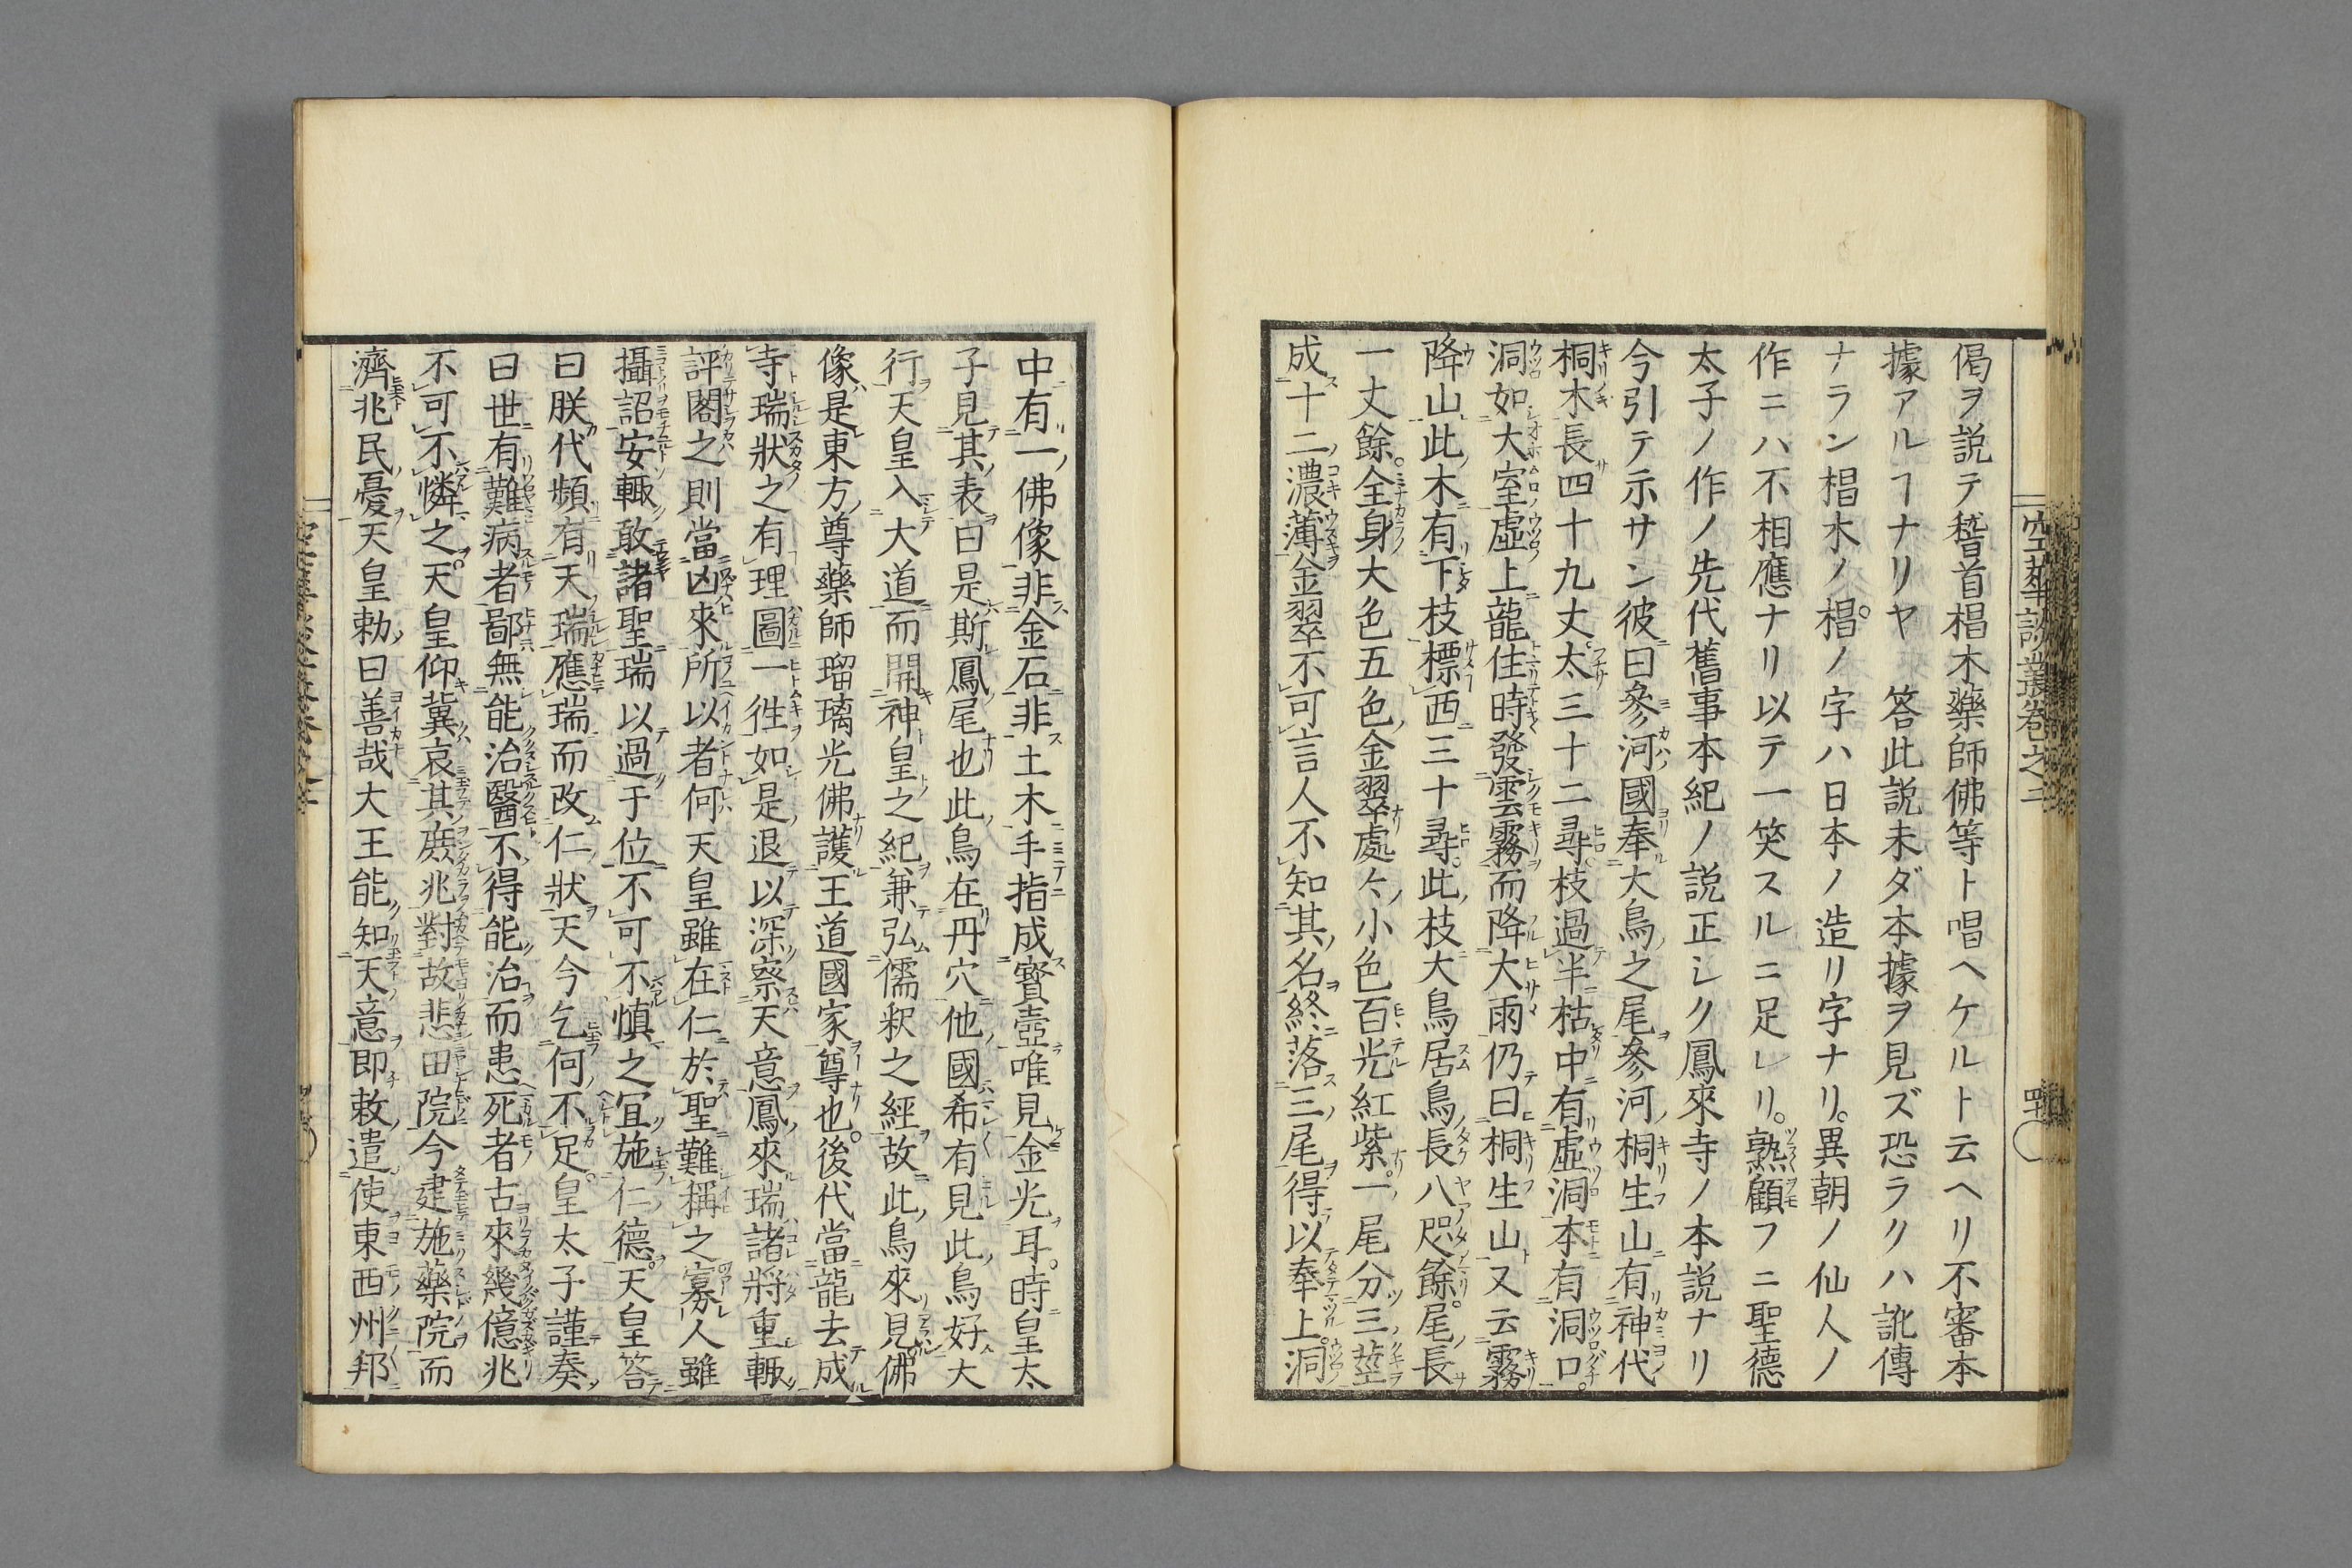 偈ヲ説テ稽首椙木藥師佛等ト唱ヘケルト云ヘリ不審本
據アルヿナリヤ 答此説未ダ本據ヲ見ズ恐ラクハ訛傳
ナラン椙木ノ椙ノ字ハ日本ノ造リ字ナリ。異朝ノ仙人ノ
作ニハ不相應ナリ以テ一笑スルニ足レリ。熟顧フニ聖德
太子ノ作ノ先代舊事本紀ノ説正シク鳳來寺ノ本説ナリ
今引テ示サン彼曰參河國奉大鳥之尾參河桐生山有神代
桐木長四十九丈。太三十二尋。枝過半枯中有虛洞本有洞口。
洞如大室虛上龍住時發雲霧而降大雨仍曰桐生山又云霧
降山此木有下枝標西三十尋。此枝大鳥居鳥長八咫餘。尾長
一丈餘。全身大色五色金翠處々小色百光紅紫。一尾分三莖
成十二濃薄金翠不可言人不知其名終落三尾得以奉上。洞
中有一佛像非金石非土木手指成寳壺唯見金光耳。時皇太
子見其表曰是斯鳳尾也此鳥在丹穴他國希有見此鳥好大
行天皇入大道而開神皇之紀兼弘儒釈之經故此鳥來見佛
像是東方尊藥師瑠璃光佛護王道國家尊也。後代當龍去成
寺瑞狀之有理圖一徃如是退以深察天意鳳來瑞諸將重輙
評閣之則當凶來所以者何天皇雖在仁於聖難稱之寡人雖
攝詔安輙敢諸聖瑞以過于位不可不慎之冝施仁德。天皇答
曰朕代頻有天瑞應瑞而改仁狀天今乞何不足。皇太子謹奏
曰世有難病者鄙無能治醫不得能治而患死者古來幾億兆
不可不憐之。天皇仰冀哀其庶兆對故悲田院今建施藥院而
濟兆民憂天皇勅曰善哉大王能知天意即敕遣使東西州邦
空華談叢卷之二